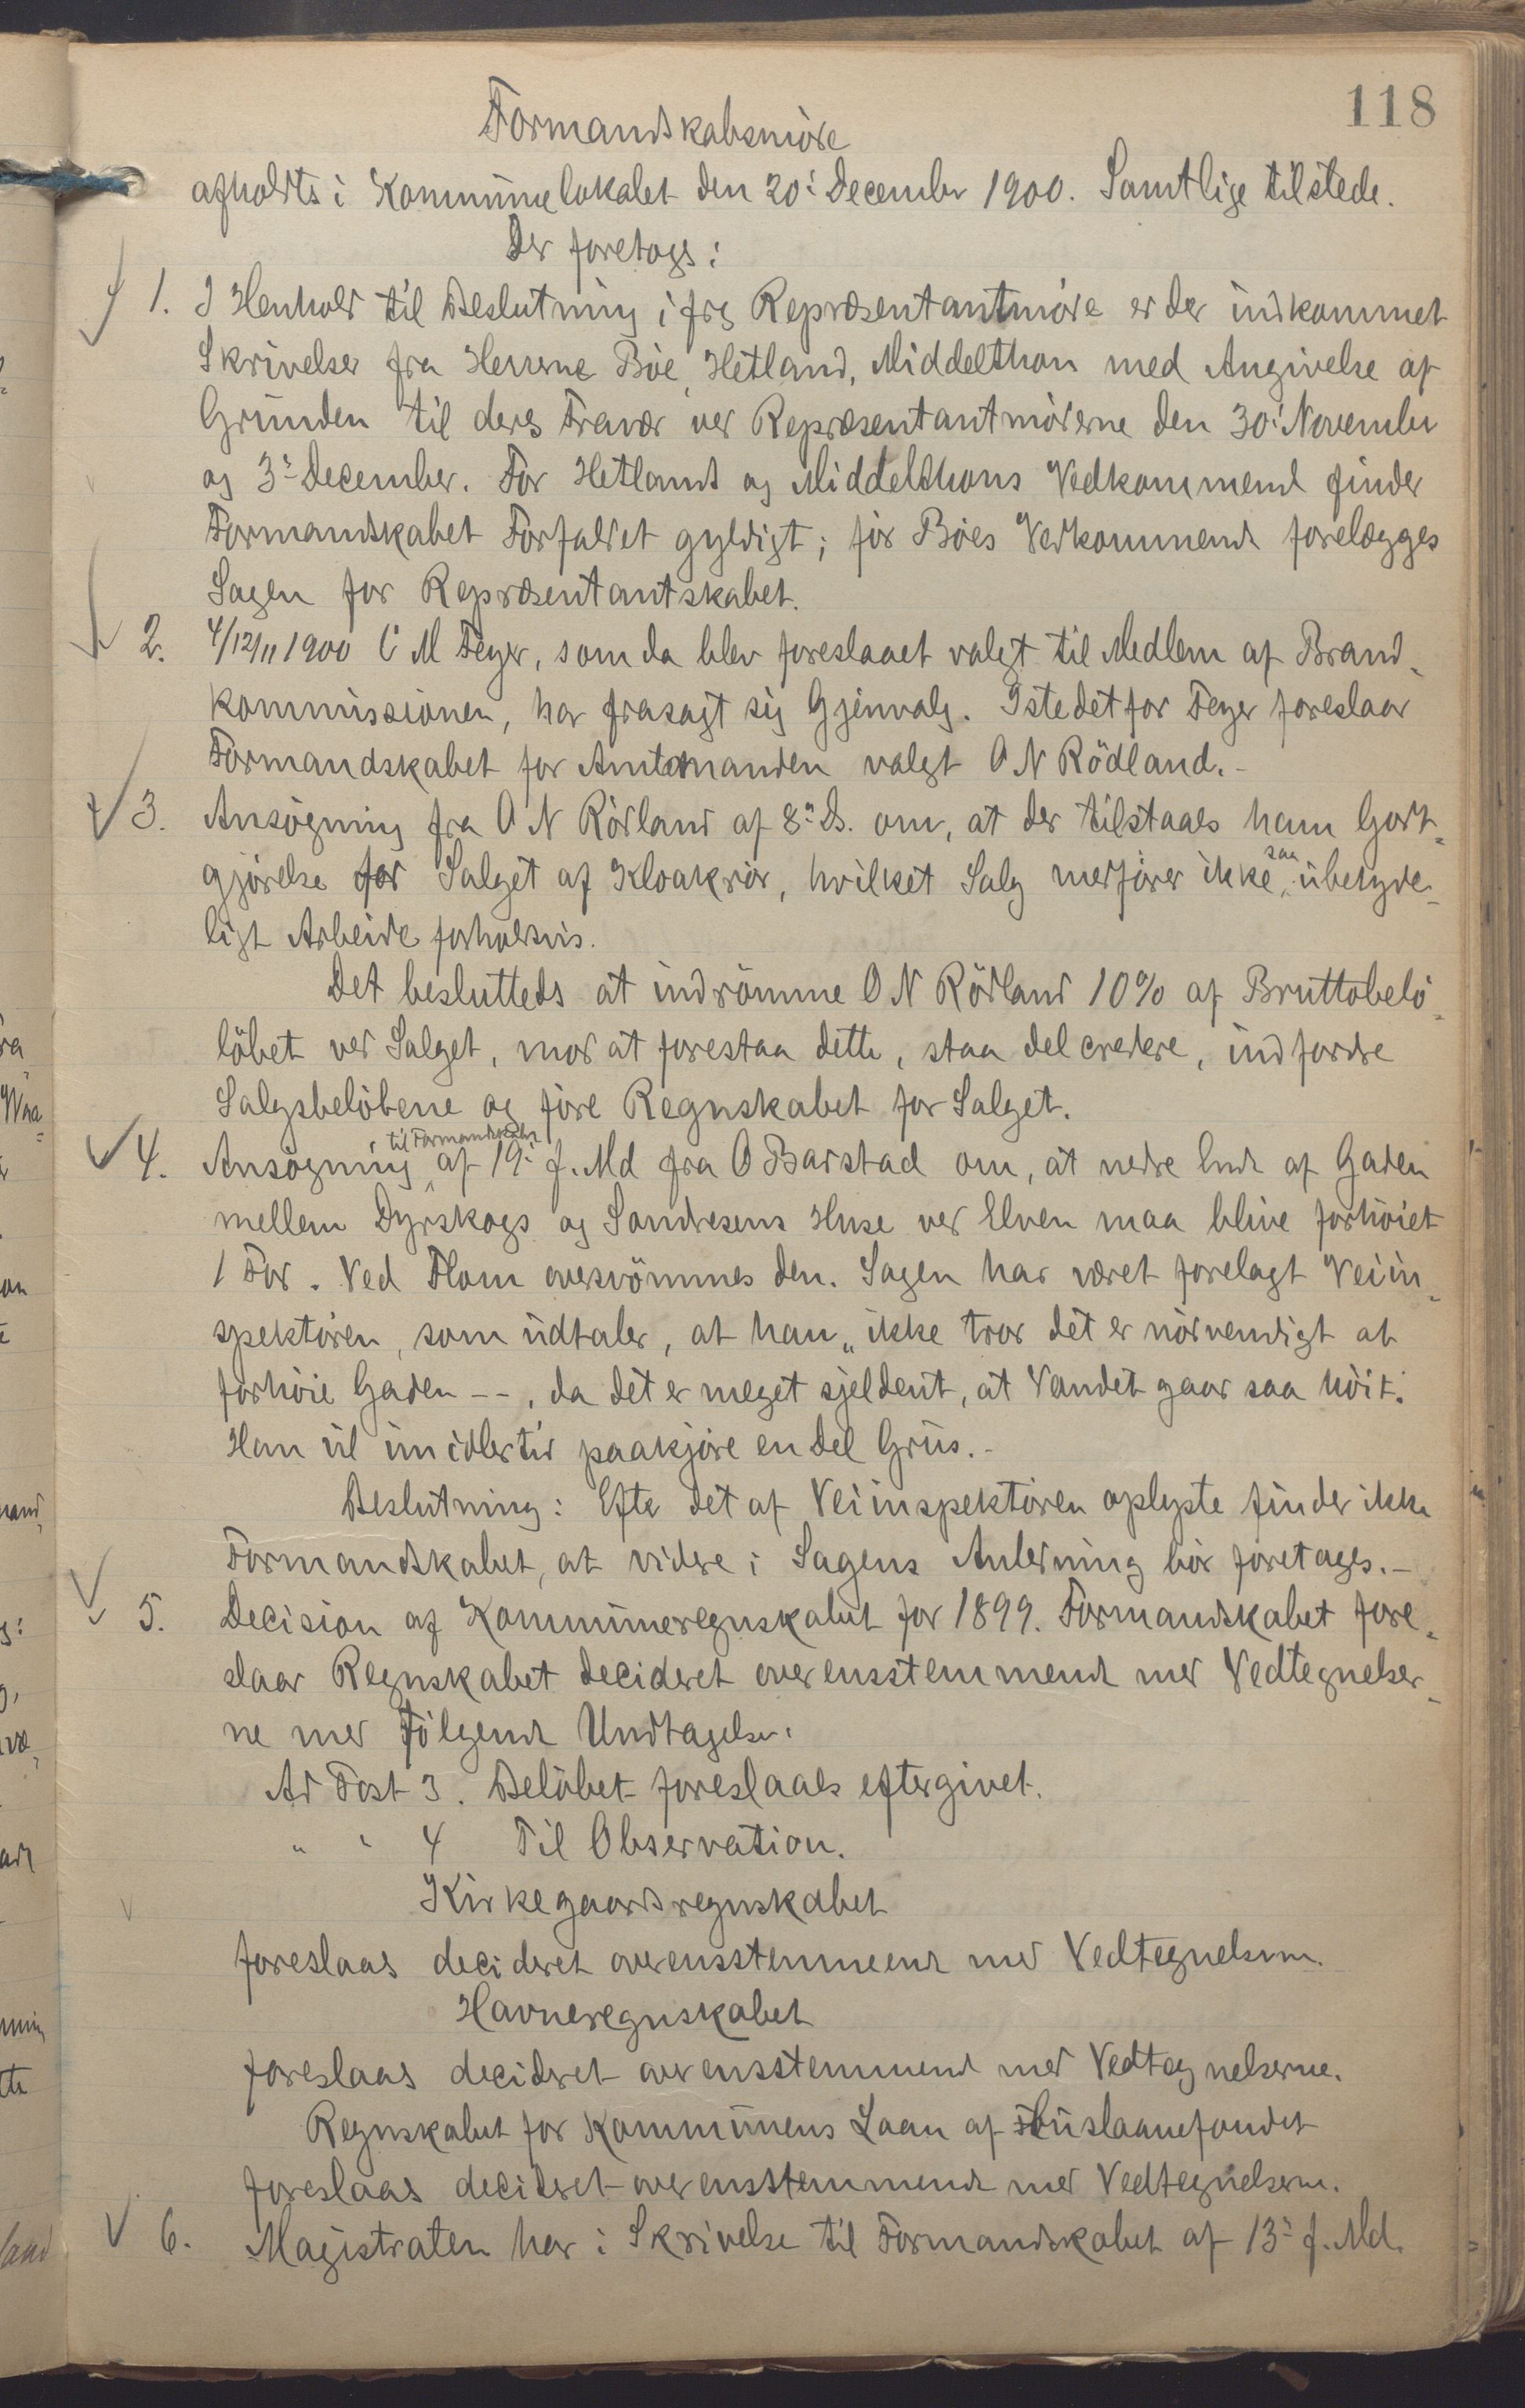 118
Formandskabsmöde
afholdts i Kommunelokalet den 20: December 1900. Samtlige tilstede.
Der foretogs:
1. I Henhold til Beslutning i frg Repræsentantmöde er der indkommet
Skrivelser fra Herrerne Böe, Hetland, Middelthon med Angivelse af
Grunden til deres Fravær ved Repræsentantmöderne den 30: November
og 3: December. For Hetlands og Middelthons Vedkommende finder
Formandskabet Forfaldet gyldigt; for Böes Vedkommende forelægges
Sagen for Repræsentantskabet.
2. 4/12/11 1900 C M Feyer, som da blev foreslaaet valgt til Medlem af Brand-
kommissionen, har frasagt sig Gjenvalg. Istedetfor Feyer foreslaar
Formandskabet for Amtmanden valgt O N Rödland.-
3. Ansögning fra O N Rödland af 8: Ds. om, at der tilstaaes ham Godt-
gjörelse for Salget af Kloakrör, hvilket Salg medförer ikke saa ubetyde-
ligt Arbeide forholdsvis.
Det besluttedes at indrömme O N Rödland 10% af Bruttobelö-
löbet ved Salget, mod at forestaa dette, staa delcredere, indfordre
Salgsbelöbene og före Regnskabet for Salget.
4. Ansögning til Formandskabet af 19: f. Md fra O Barstad om, at nedre Ende af Gaden
mellem Dyrskogs og Sandresens Huse ved Elven maa blive forhöiet
1 Fod. Ved Flom oversvömmes den. Sagen har været forelagt Veiin-
spektören, som udtaler, at han „ikke tror det er nödvendigt at
forhöie Gaden --, da det er meget sjeldent, at Vandet gaar saa höit."
Han vil imidlertid paakjöre en Del Grus.-
Beslutning: Efter det af Veiinspektören oplyste finder ikke
Formandskabet, at videre i Sagens Anledning bör foretages.-
5. Decision af Kommuneregnskabet for 1899. Formandskabet fore-
slaar Regnskabet decideret overensstemmende med Vedtegnelser-
ne med fölgende Undtagelse:
Ad Post 3. Belöbet foreslaaes eftergivet.
" " 4 Til Observation.
Kirkegaardsregnskabet
foreslaas decideret overensstemmende med Vedtegnelserne.
Havneregnskabet
foreslaas decideret overensstemmende med Vedtegnelserne.
Regnskabet for Kommunens Laan af Huslaanefondet
foreslaas decideret overensstemmende med Vedtegnelserne.
6. Magistraten har i Skrivelse til Formandskabet af 13: f. Md.